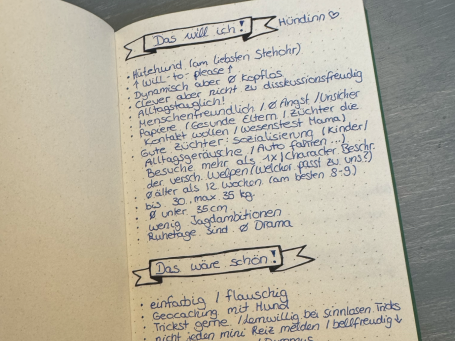 Das will ich!
Hündinn ♡
• Hütehund (am liebsten Stehohr)
• ↑ Will to please ↑
• Dynamisch aber Ø Kopflos
• Clever aber nicht zu disskussionsfreudig
• Alltagstauglich!
• Menschenfreundlich / Ø Angst / Unsicher
• Papiere (Gesunde Eltern / Züchter die
Kontakt wollen / Wesenstest Mama)
• Gute Züchter: Sozialisierung (Kinder/
Alltagsgeräusche / Auto fahren ...)
• Besuche mehr als 1x / Character Beschr.
der versch. Welpen (Welcher passt zu uns?)
• Ø älter als 12 Wochen (am besten 8-9)
• bis 30. max. 35 kg.
• Ø unter 35cm
• wenig Jagdambitionen
• Ruhetage sind Ø Drama
Das wäre schön!
• einfarbig / flauschig
• Geocaching mit Hund
• Trickst gerne / lernwillig bei sinnlosen Tricks
• nicht jeden mini Reiz melden / bellfreudig ↓